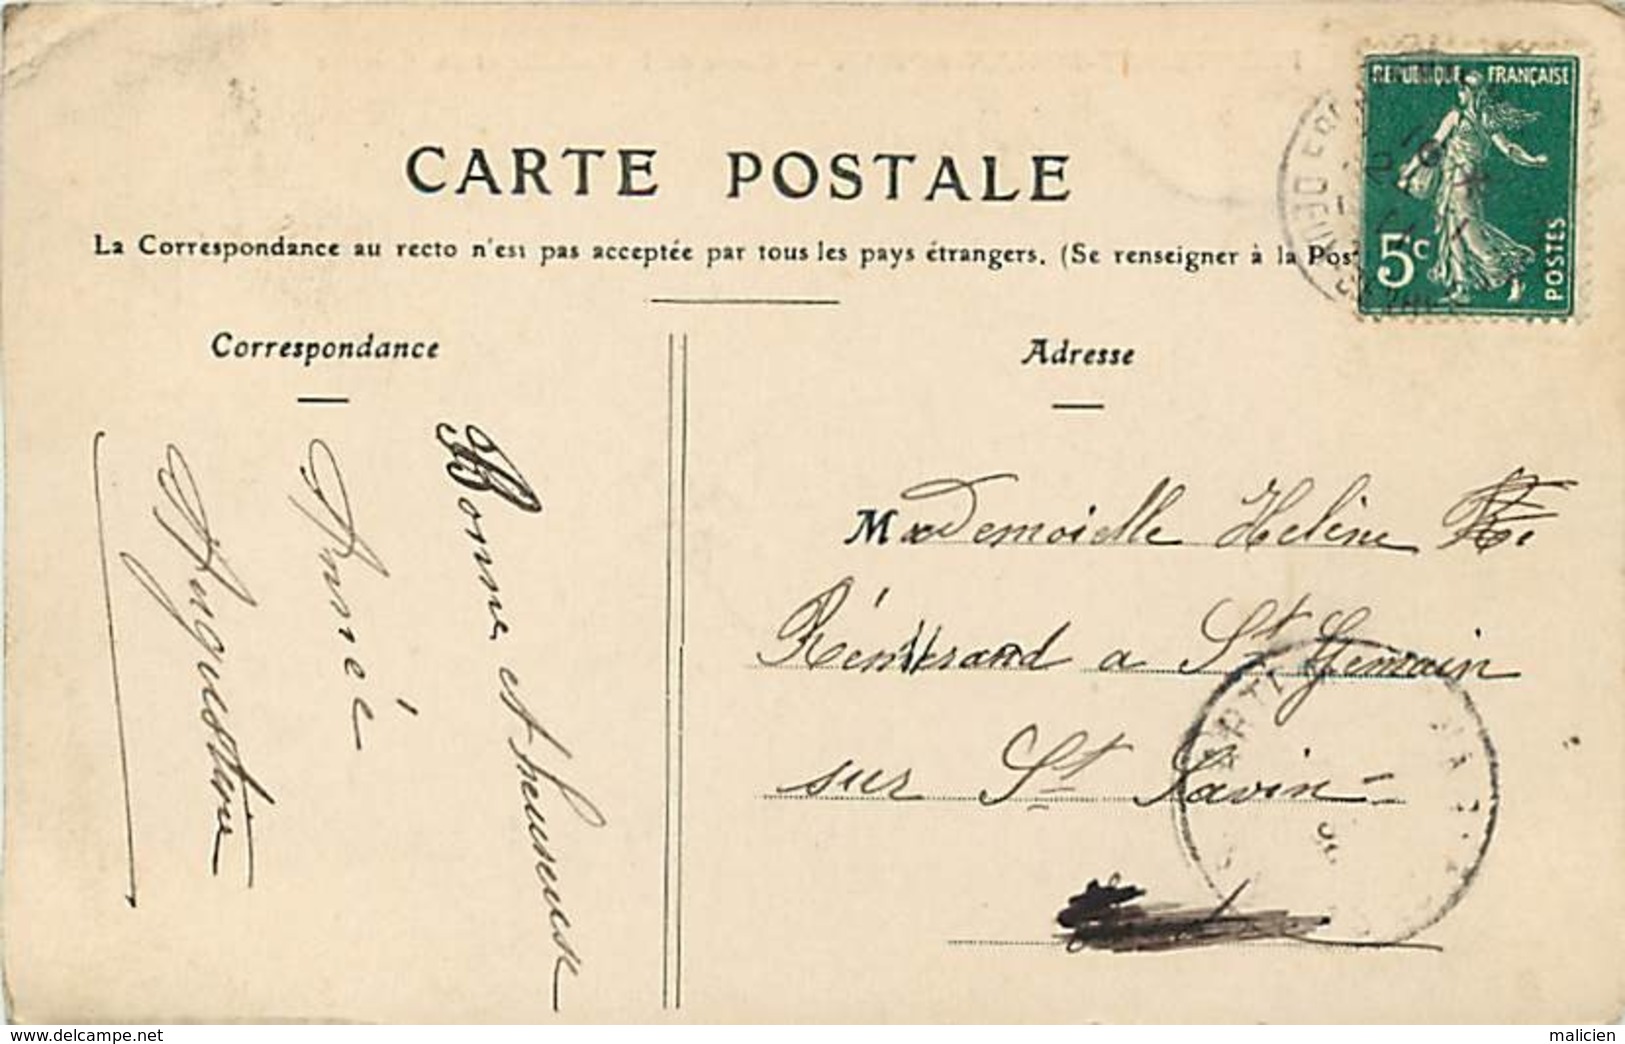 REPUBLIQUE FRANÇAISE
5c
POSTES
CARTE POSTALE
La Correspondance au recto n'est pas acceptée par tous les pays étrangers. (Se renseigner à la Pos
Correspondance
Adresse
Bonne et heureuse
Année
Augustine
Mademoiselle Helène
a St Germain
sur St Savin
delcampe.net
malicien